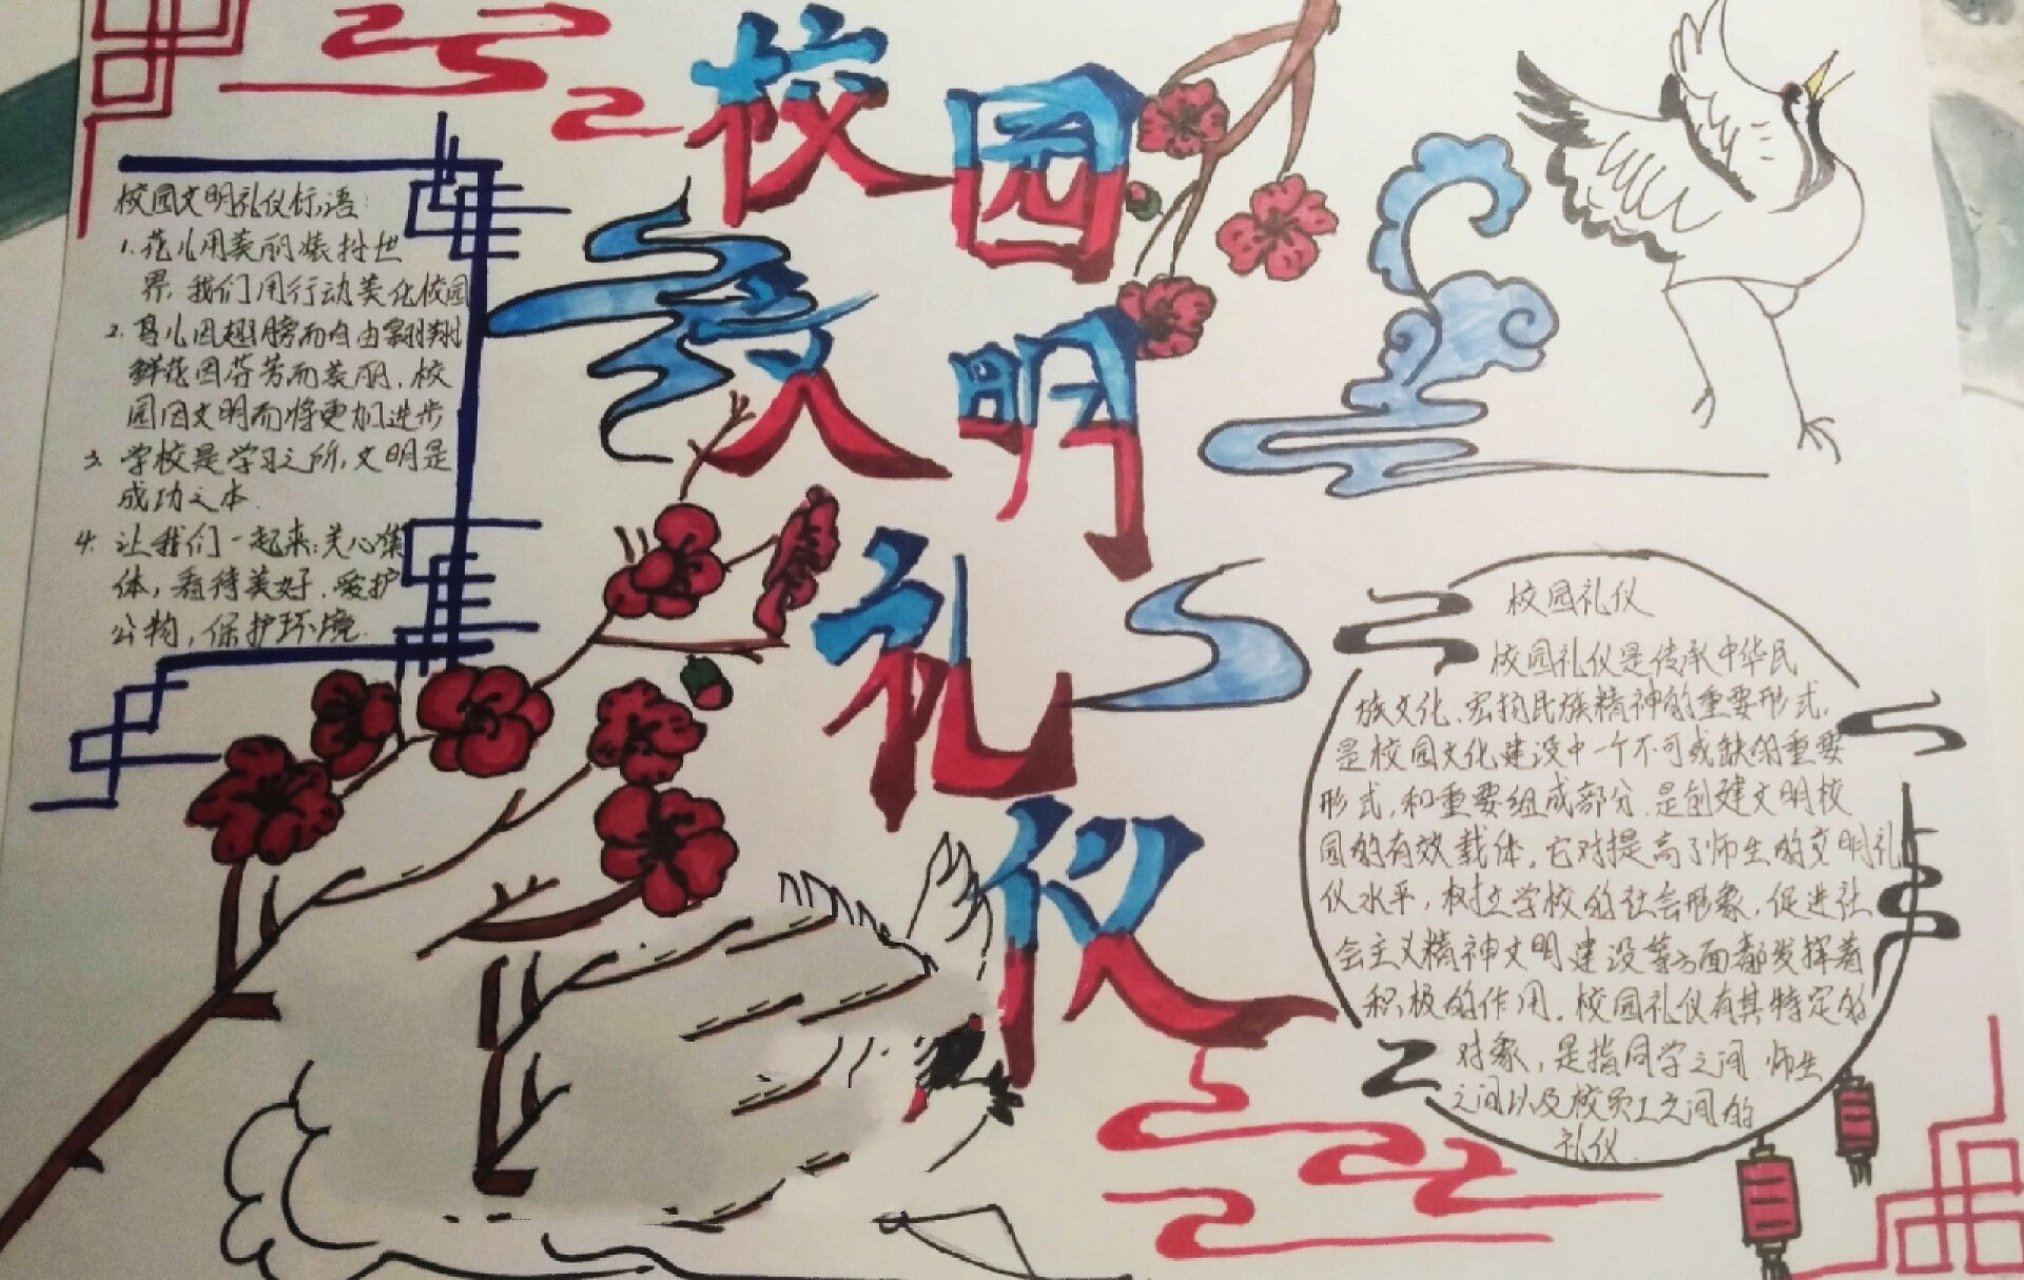 校园文明礼仪
校园文明礼仪标语:
1.花儿用美丽装扮世
界,我们用行动美化校园
2.鸟儿因翅膀而自由翱翔
鲜花因芬芳而美丽.校
园因文明而将更加进步
3.学校是学习之所,文明是
成功之本.
4.让我们一起来:关心集
体,看待美好.爱护
公物,保护环境.
校园礼仪
校园礼仪是传承中华民
族文化.宏扬民族精神的重要形式.
是校园文化建设中一个不可或缺的重要
形式,和重要组成部分.是创建文明校
园的有效载体.它对提高了师生的文明礼
仪水平,树立学校的社会形象,促进社
会主义精神文明建设等方面都发挥着
积极的作用.校园礼仪有其特定的
对象,是指同学之间 师生
之间以及校员工之间的
礼仪.